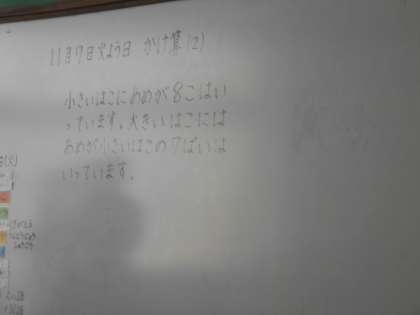 11月7日火よう日 かけ算(2)
小さいはこにあめが8こはい
っています。大きいはこには
あめが小さいはこの7ばいは
いっています。